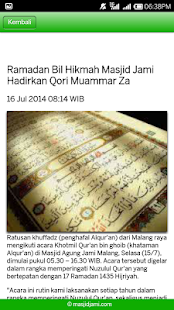 06:38PM
Kembali
Ramadan Bil Hikmah Masjid Jami
Hadirkan Qori Muammar Za
16 Jul 2014 08:14 WIB
Ratusan khuffadz (penghafal Alqur'an) dari Malang raya
mengikuti acara Khotmil Qur'an bin ghoib (khataman
Alqur'an) di Masjid Agung Jami Malang, Selasa (15/7),
dimulai pukul 05.30 – 16.30 WIB. Acara tersebut digelar
dalam rangka memperingati Nuzulul Qur'an yang
bertepatan dengan 17 Ramadan 1435 Hijriyah.
"Acara ini rutin kami laksanakan setiap tahun dalam
rangka memperingati Nuzulul Qur'an, sekaligus menjadi
© masjidjami.com